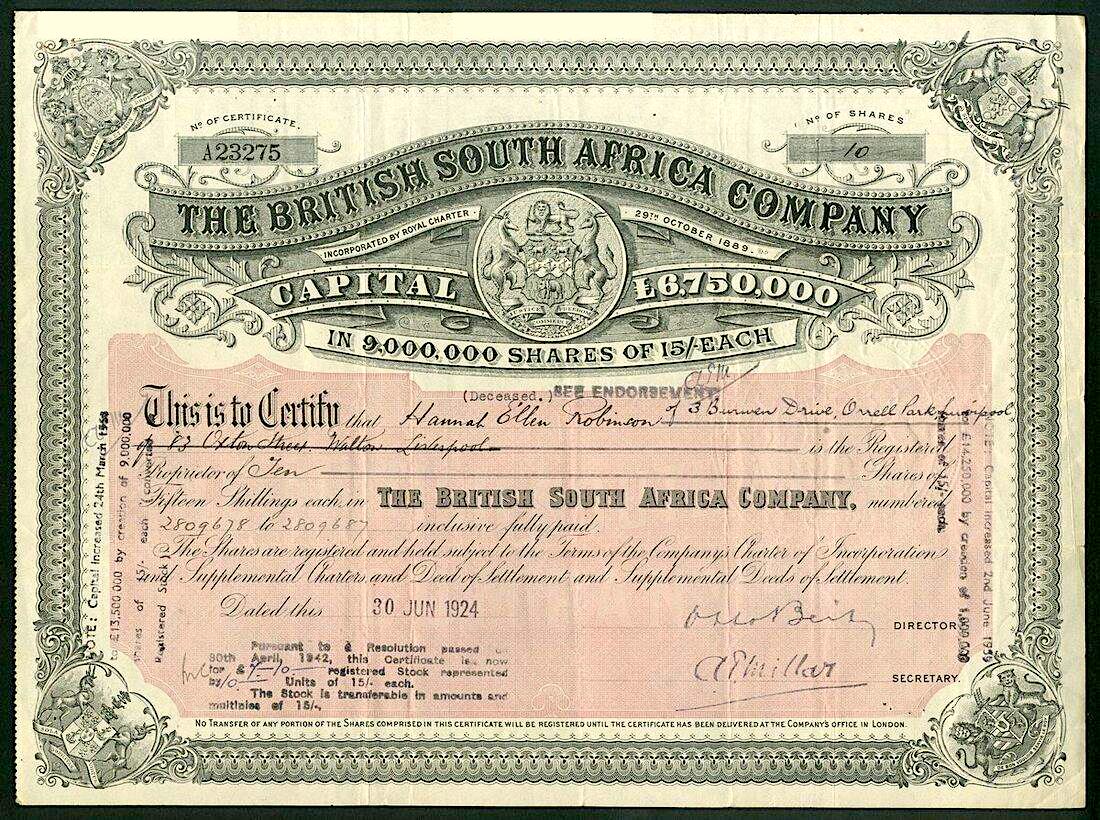 Nº OF CERTIFICATE.
A23275
Nº OF SHARES
10
THE BRITISH SOUTH AFRICA COMPANY
INCORPORATED BY ROYAL CHARTER
29TH OCTOBER 1889.
CAPITAL £6,750,000
JUSTICE FREEDOM
COMMERCE
IN 9,000,000 SHARES OF 15/- EACH
(Deceased.) SEE ENDORSEMENT
This is to Certify that Hannah Ellen Robinson of 3 Burwen Drive, Orrell Park Liverpool
of 83 Oxton Street Walton Liverpool is the Registered
Proprietor of Ten Shares of
Fifteen Shillings each in THE BRITISH SOUTH AFRICA COMPANY, numbered
2809678 to 2809687 inclusive fully paid.
The Shares are registered and held subject to the Terms of the Company's Charter of Incorporation
and Supplemental Charters and Deed of Settlement and Supplemental Deeds of Settlement.
Dated this 30 JUN 1924
Otto Beit
DIRECTOR.
A P Millar
SECRETARY.
Pursuant to a Resolution passed on
30th April, 1942, this Certificate is now
for £7-10- registered Stock represented
by 10 Units of 15/- each.
The Stock is transferable in amounts and
multiples of 15/-.
NOTE: Capital increased 24th March
to £13,500,000 by creation of 9,000,000
shares of 15/- each (converted
Registered Stock
NOTE: Capital increased 2nd June 1959
to £14,250,000 by creation of 1,000,000
shares of 15/- each.
NO TRANSFER OF ANY PORTION OF THE SHARES COMPRISED IN THIS CERTIFICATE WILL BE REGISTERED UNTIL THE CERTIFICATE HAS BEEN DELIVERED AT THE COMPANY'S OFFICE IN LONDON.